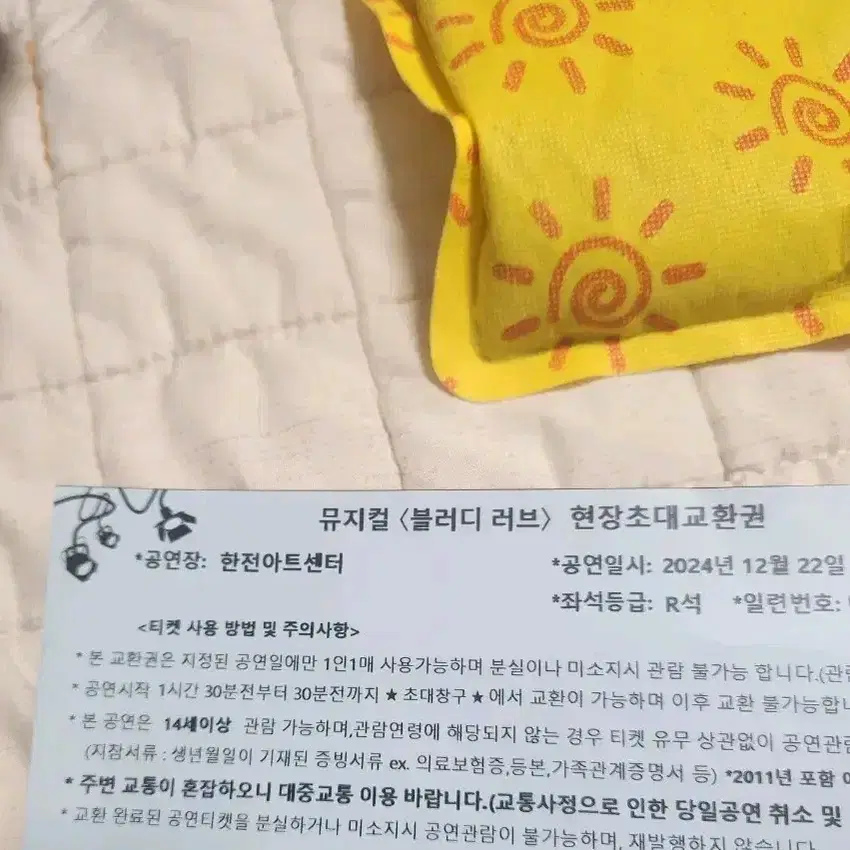 뮤지컬 〈블러디 러브〉 현장초대교환권
*공연장: 한전아트센터 *공연일시: 2024년 12월 22일
*좌석등급: R석 *일련번호:
<티켓 사용 방법 및 주의사항>
* 본 교환권은 지정된 공연일에만 1인1매 사용가능하며 분실이나 미소지시 관람 불가능 합니다.(관람
* 공연시작 1시간 30분전부터 30분전까지 ★ 초대창구 ★ 에서 교환이 가능하며 이후 교환 불가능합니
* 본 공연은 14세이상 관람 가능하며,관람연령에 해당되지 않는 경우 티켓 유무 상관없이 공연관람
(지참서류 : 생년월일이 기재된 증빙서류 ex. 의료보험증,등본,가족관계증명서 등) *2011년 포함
* 주변 교통이 혼잡하오니 대중교통 이용 바랍니다.(교통사정으로 인한 당일공연 취소 및
* 교환 완료된 공연티켓을 분실하거나 미소지시 공연관람이 불가능하며, 재발행하지 않습니다